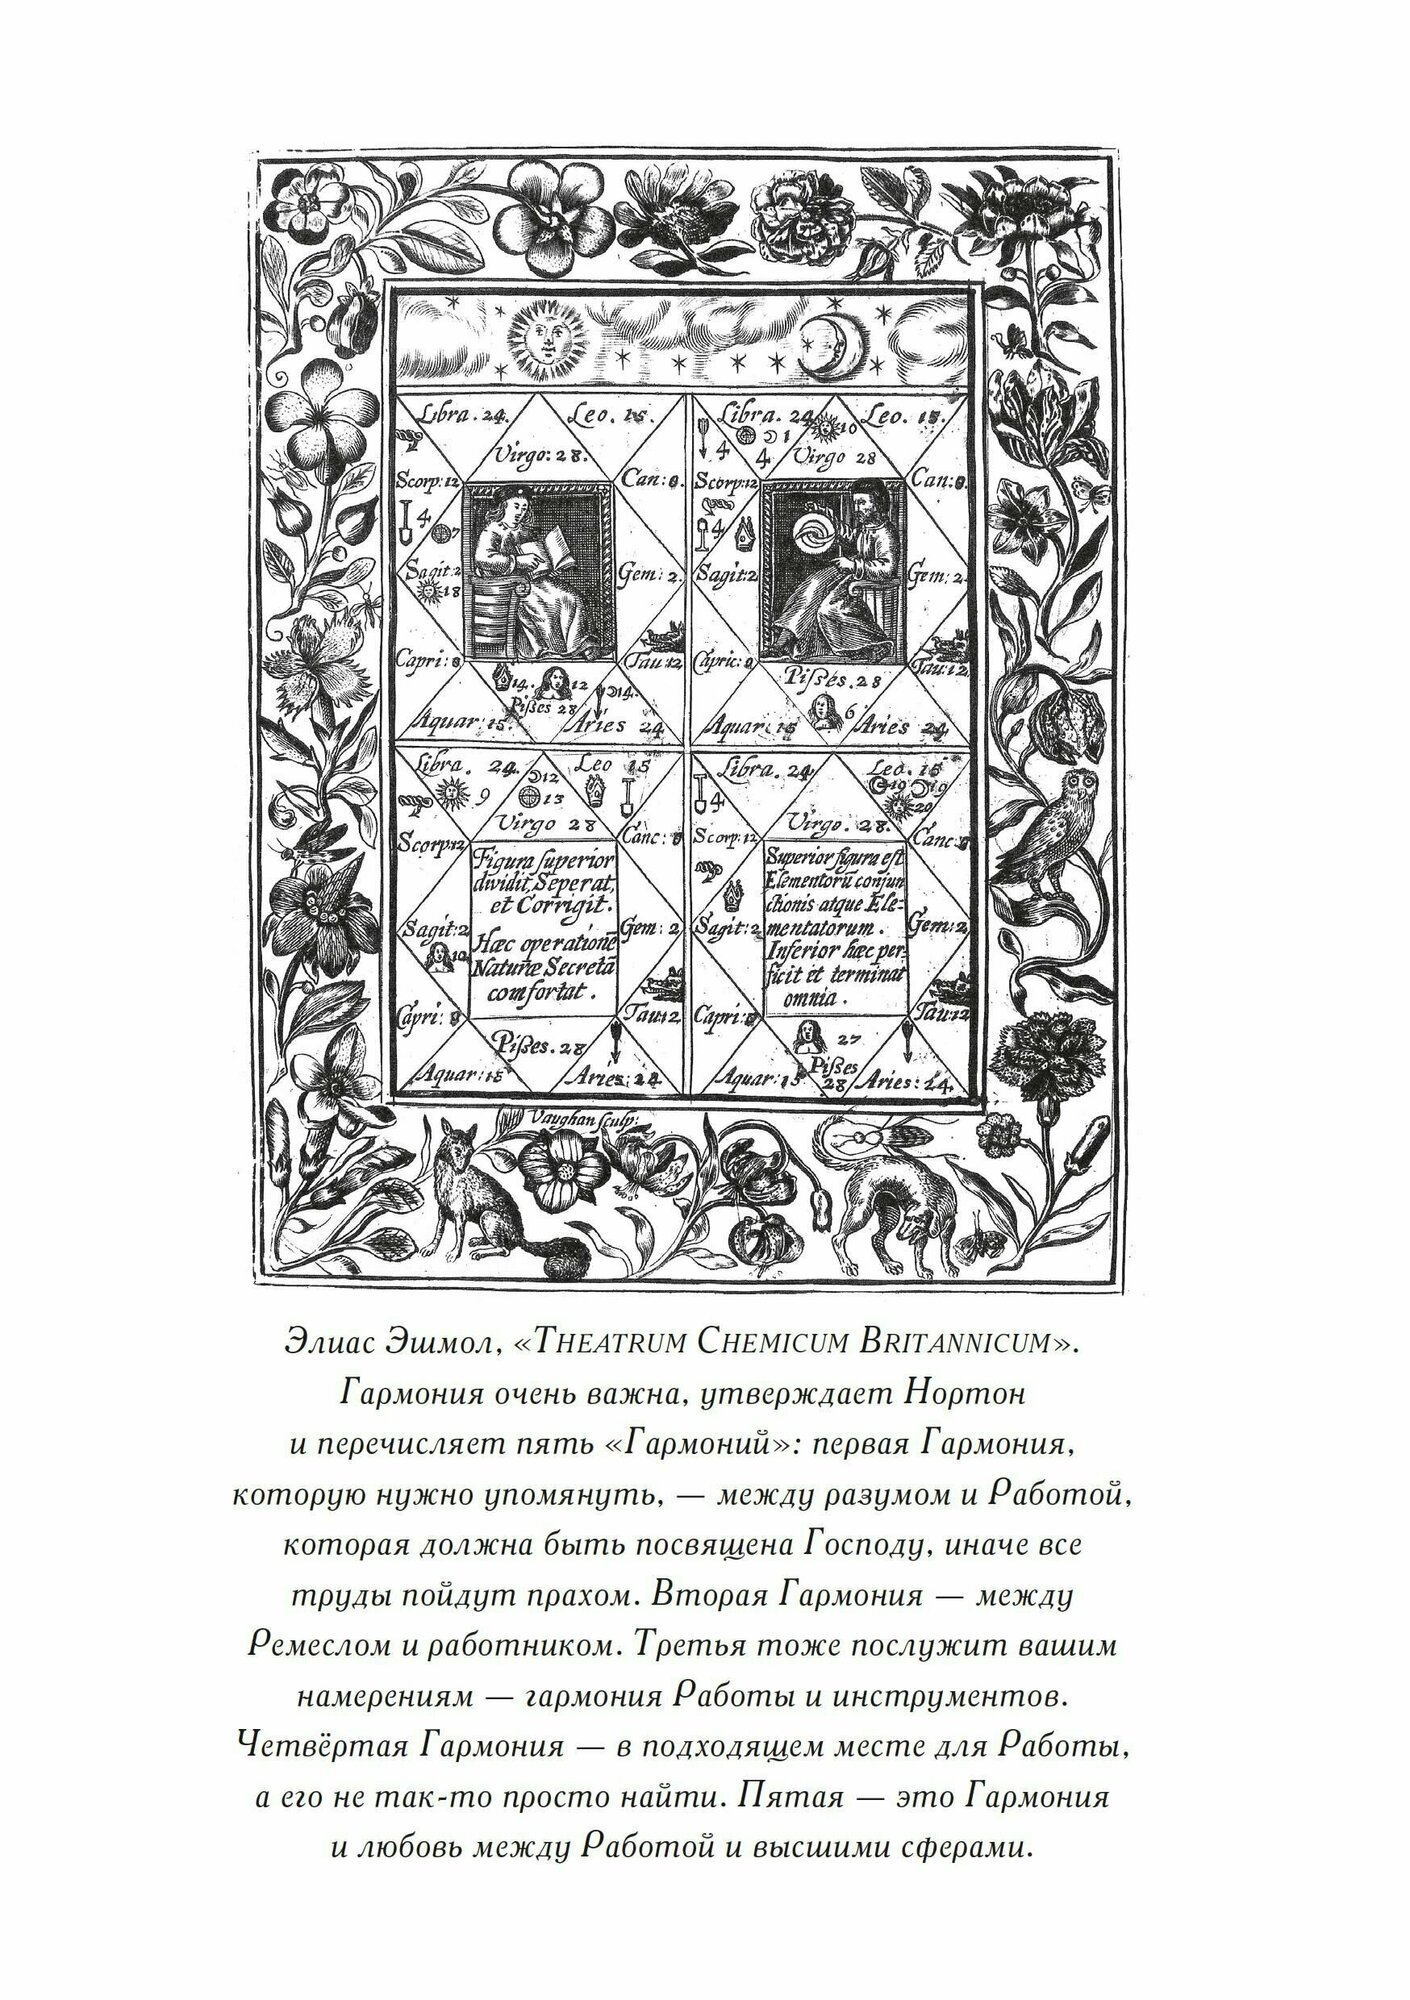 Libra. 24. Leo. 15.
Virgo: 28.
Scorp: 12 Can: 0.
4 7
Sagit: 2 Gem: 2.
18
Capri: 0 Tau: 12
14. 12 14.
Pißes 28
Aquar: 15. Aries 24
Libra. 24 10 Leo. 15.
4 1
4 Virgo 28
Scorp: 12 Can: 0.
4
Sagit: 2 Gem: 2.
Capric: 0 Tau: 12
Pißes. 28
6
Aquar: 15 Aries 24
Libra. 24. 12 Leo 15
9 13
Virgo 28
Scorp: 12 Canc: 0
Figura superior
dividit, Seperat,
et Corrigit.
Hæc operationē
Naturæ Secretā
comfortat.
Sagit: 2 Gem: 2
10
Capri: 0 Tau: 12
Pißes. 28
Aquar: 15 Aries: 24
Libra. 24 Leo. 15
4 19 19
20
Virgo. 28.
Scorp: 12 Canc: 0
Superior figura est
Elementorū conjun
ctionis atque Ele-
mentatorum.
Inferior hæc per-
ficit et terminat
omnia.
Sagit: 2 Gem: 2
Capri: 0 Tau: 12
27
Pißes
28
Aquar: 15 Aries: 24
Vaughan sculp:
Элиас Эшмол, «THEATRUM CHEMICUM BRITANNICUM».
Гармония очень важна, утверждает Нортон
и перечисляет пять «Гармоний»: первая Гармония,
которую нужно упомянуть, — между разумом и Работой,
которая должна быть посвящена Господу, иначе все
труды пойдут прахом. Вторая Гармония — между
Ремеслом и работником. Третья тоже послужит вашим
намерениям — гармония Работы и инструментов.
Четвёртая Гармония — в подходящем месте для Работы,
а его не так-то просто найти. Пятая — это Гармония
и любовь между Работой и высшими сферами.